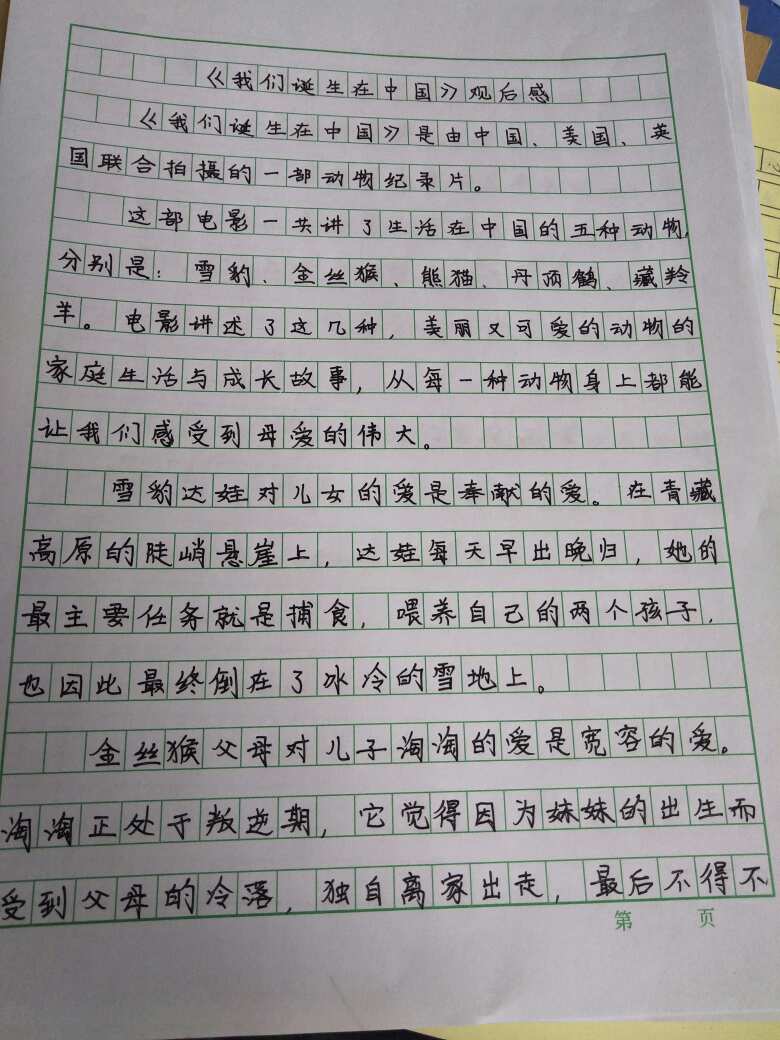 《我们诞生在中国》观后感
《我们诞生在中国》是由中国、美国、英
国联合拍摄的一部动物纪录片。
这部电影一共讲了生活在中国的五种动物,
分别是：雪豹、金丝猴、熊猫、丹顶鹤、藏羚
羊。电影讲述了这几种，美丽又可爱的动物的
家庭生活与成长故事，从每一种动物身上都能
让我们感受到母爱的伟大。
雪豹达娃对儿女的爱是奉献的爱。在青藏
高原的陡峭悬崖上，达娃每天早出晚归，她的
最主要任务就是捕食，喂养自己的两个孩子，
也因此最终倒在了冰冷的雪地上。
金丝猴父母对儿子淘淘的爱是宽容的爱。
淘淘正处于叛逆期，它觉得因为妹妹的出生而
受到父母的冷落，独自离家出走，最后不得不
第 页